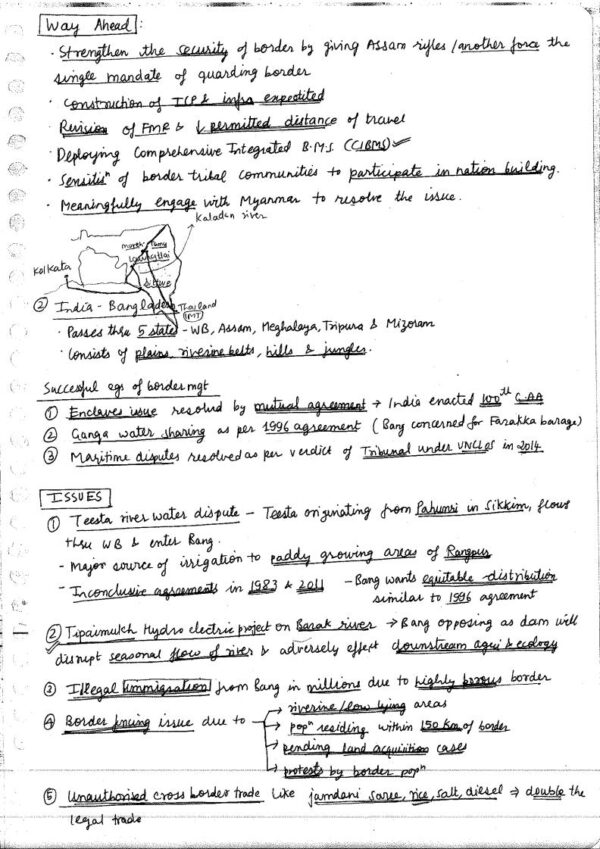 Way Ahead :
· Strengthen the security of border by giving Assam rifles / another force the
single mandate of guarding border
· Construction of ICP & infra expedited
· Revision of FMR & ↓ permitted distance of travel
· Deploying Comprehensive Integrated B.M.S. (CIBMS) ✓
· Sensitisⁿ of border tribal communities to participate in nation building.
· Meaningfully engage with Myanmar to resolve the issue.
Kaladan river
Lawngtlai
Kolkata
Sittwe
② India - Bangladesh
Thailand
IMT
· Passes thru 5 state - WB, Assam, Meghalaya, Tripura & Mizoram
· Consists of plains, riverine belts, hills & jungles.
Successful egs of border mgt
① Enclaves issue resolvd by mutual agreement → India enacted 100th CAA
② Ganga water sharing as per 1996 agreement ( Bang concerned for Farakka barage)
③ Maritime disputes resolved as per verdict of Tribunal under UNCLOS in 2014.
ISSUES
① Teesta river water dispute - Teesta originating from Pahunri in Sikkim, flows
thru WB & enter Bang.
- Major source of irrigation to paddy growing areas of Rangpur
- Inconclusive agreements in 1983 & 2011 - Bang wants equitable distribution
similar to 1996 agreement
② Tipaimukh Hydro electric project on Barak river → Bang opposing as dam will
disrupt seasonal flow of river & adversely effect downstream agri & ecology
③ Illegal immigration from Bang in millions due to highly porous border
④ Border fencing issue due to → riverine/low lying areas
→ popⁿ residing within 150 Km of border
→ pending land acquisition cases
→ protests by border popⁿ
⑤ Unauthorised cross border trade like jamdani saree, rice, salt, diesel → double the
legal trade